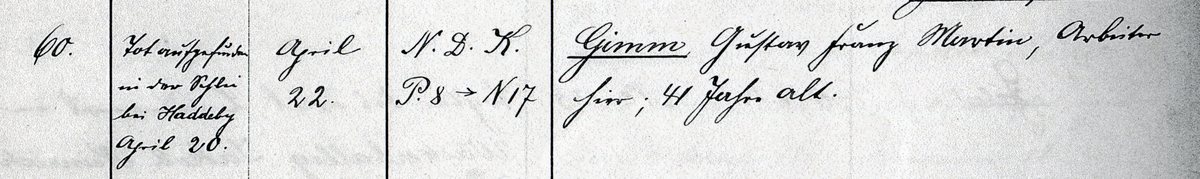 60.
Tot aufgefunden
in der Schlei
bei Haddeby
April 20.
April
22.
N. D. K.
P. 8 → N 17
Gimm, Gustav Franz Martin, Arbeiter
hier; 41 Jahre alt.